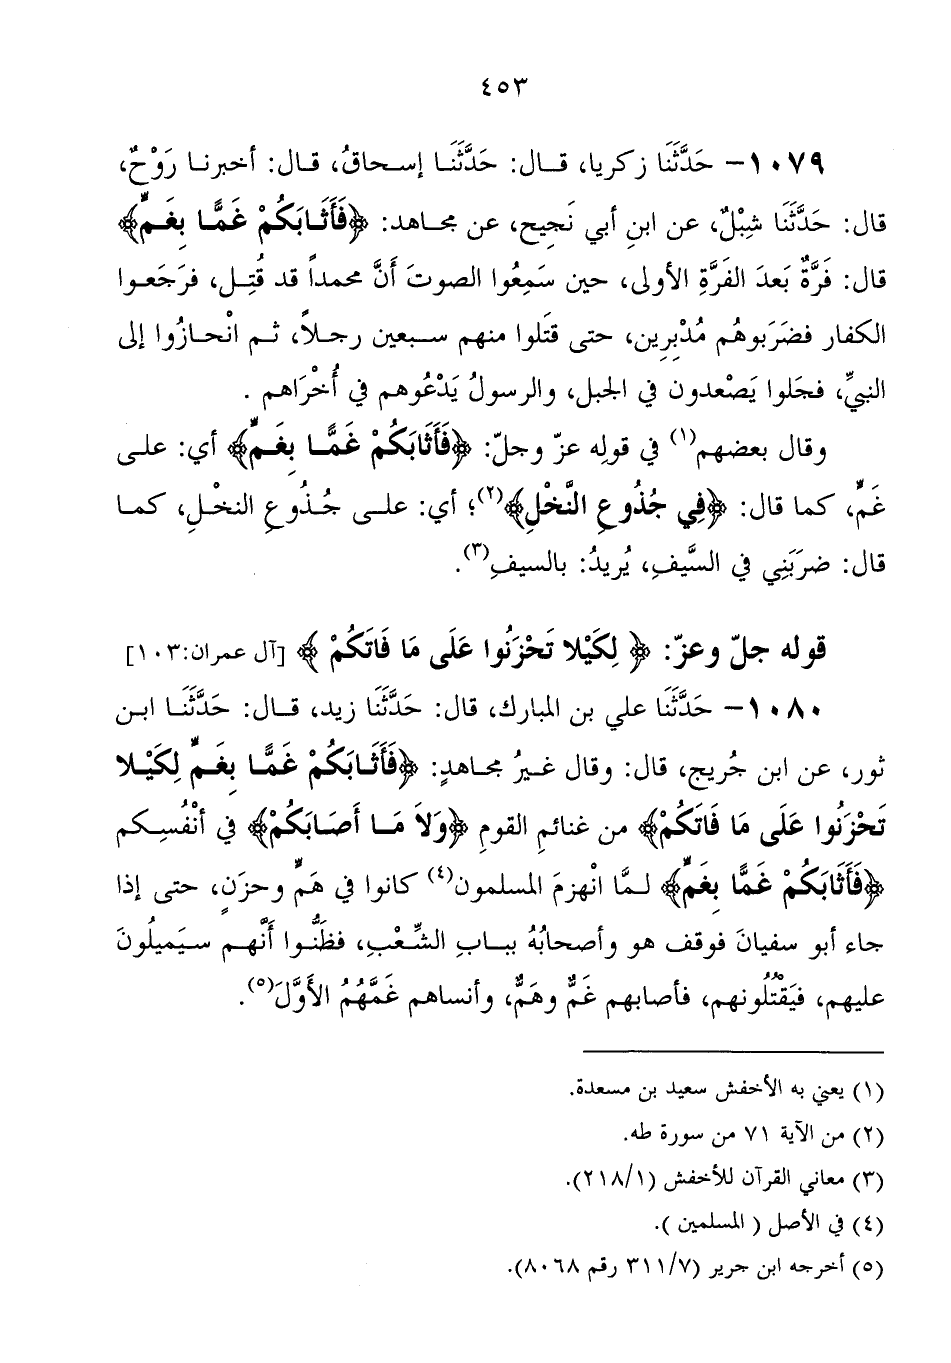 ٤٥٣
١٠٧٩- حَدَّثَنَا زكريا، قـال: حَدَّثَنَـا إسـحاقُ، قـال: أخبرنـا رَوْحٌ،
قال: حَدَّثَنَا شِبْلٌ، عن ابنِ أبي نَجيح، عن مجـاهد: ﴿فَأَثَـابَكُمْ غَمًّـا بِغَـمٍّ﴾
قال: فَرَّةٌ بَعدَ الفَرَّةِ الأولى، حين سَمِعُوا الصوتَ أَنَّ محمداً قد قُتِـل، فرَجَعـوا
الكفار فضَرَبوهُم مُدْبِرِين، حتى قتَلوا منهم سـبعين رجـلاً، ثـم انْحـازُوا إلى
النبيِّ، فجَلوا يَصْعدون في الجبل، والرسولُ يَدْعُوهم في أُخْرَاهم .
وقال بعضهم(١) في قولِه عزّ وجلّ: ﴿فَأَثَابَكُمْ غَمًّـا بِغَـمٍّ﴾ أي: علـى
غَمٍّ، كما قال: ﴿فِي جُذُوعِ النَّخْلِ﴾(٢)؛ أي: علـى جُـذُوعِ النخْـلِ، كمـا
قال: ضرَبَنِي في السَّيفِ، يُريدُ: بالسيفِ(٣).
قوله جلّ وعزّ: ﴿ لِكَيْلا تَحْزَنُوا عَلَى مَا فَاتَكُمْ ﴾ [آل عمران:١٠٣]
١٠٨٠- حَدَّثَنَا علي بن المبارك، قال: حَدَّثَنَا زيد، قـال: حَدَّثَنَـا ابـن
ثور، عن ابن جُريج، قال: وقال غـيرُ مجـاهدٍ: ﴿فَأَثَـابَكُمْ غَمًّـا بِغَـمٍّ لِكَيْـلا
تَحْزَنُوا عَلَى مَا فَاتَكُمْ﴾ من غنائمِ القومِ ﴿وَلاَ مَـا أَصَـابَكُمْ﴾ في أنْفُسِـكم
﴿فَأَثَابَكُمْ غَمًّا بِغَمٍّ﴾ لـمَّا انْهزمَ المسلمون(٤) كانوا في هَمٍّ وحزَنٍ، حتى إذا
جاء أبو سفيانَ فوقف هو وأصحابُهُ ببـابِ الشِّـعْبِ، فظَنُّـوا أَنَّهـم سـيَميلُونَ
عليهم، فيَقْتُلُونهم، فأصابهم غَمٌّ وهَمٌّ، وأنساهم غَمَّهُمُ الأَوَّلَ(٥).
(١) يعني به الأخفش سعيد بن مسعدة.
(٢) من الآية ٧١ من سورة طه.
(٣) معاني القرآن للأخفش (٢١٨/١).
(٤) في الأصل ( المسلمين ).
(٥) أخرجه ابن جرير (٣١١/٧ رقم ٨٠٦٨).